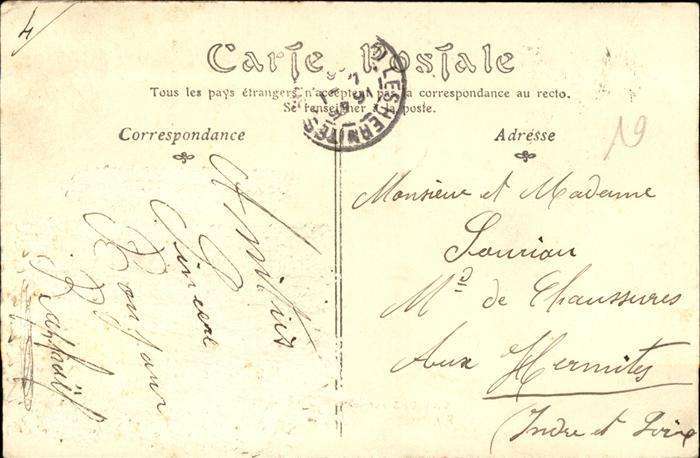 4
Carte Postale
Tous les pays étrangers n'acceptent pas la correspondance au recto.
Se renseigner à la poste.
Correspondance
Adresse
LES HERMITES
19
Amitiés
Sincère
Bonjour
Raphaël
Monsieur et Madame
Souriau
Md de Chaussures
Aux Hermites
(Indre et Loire